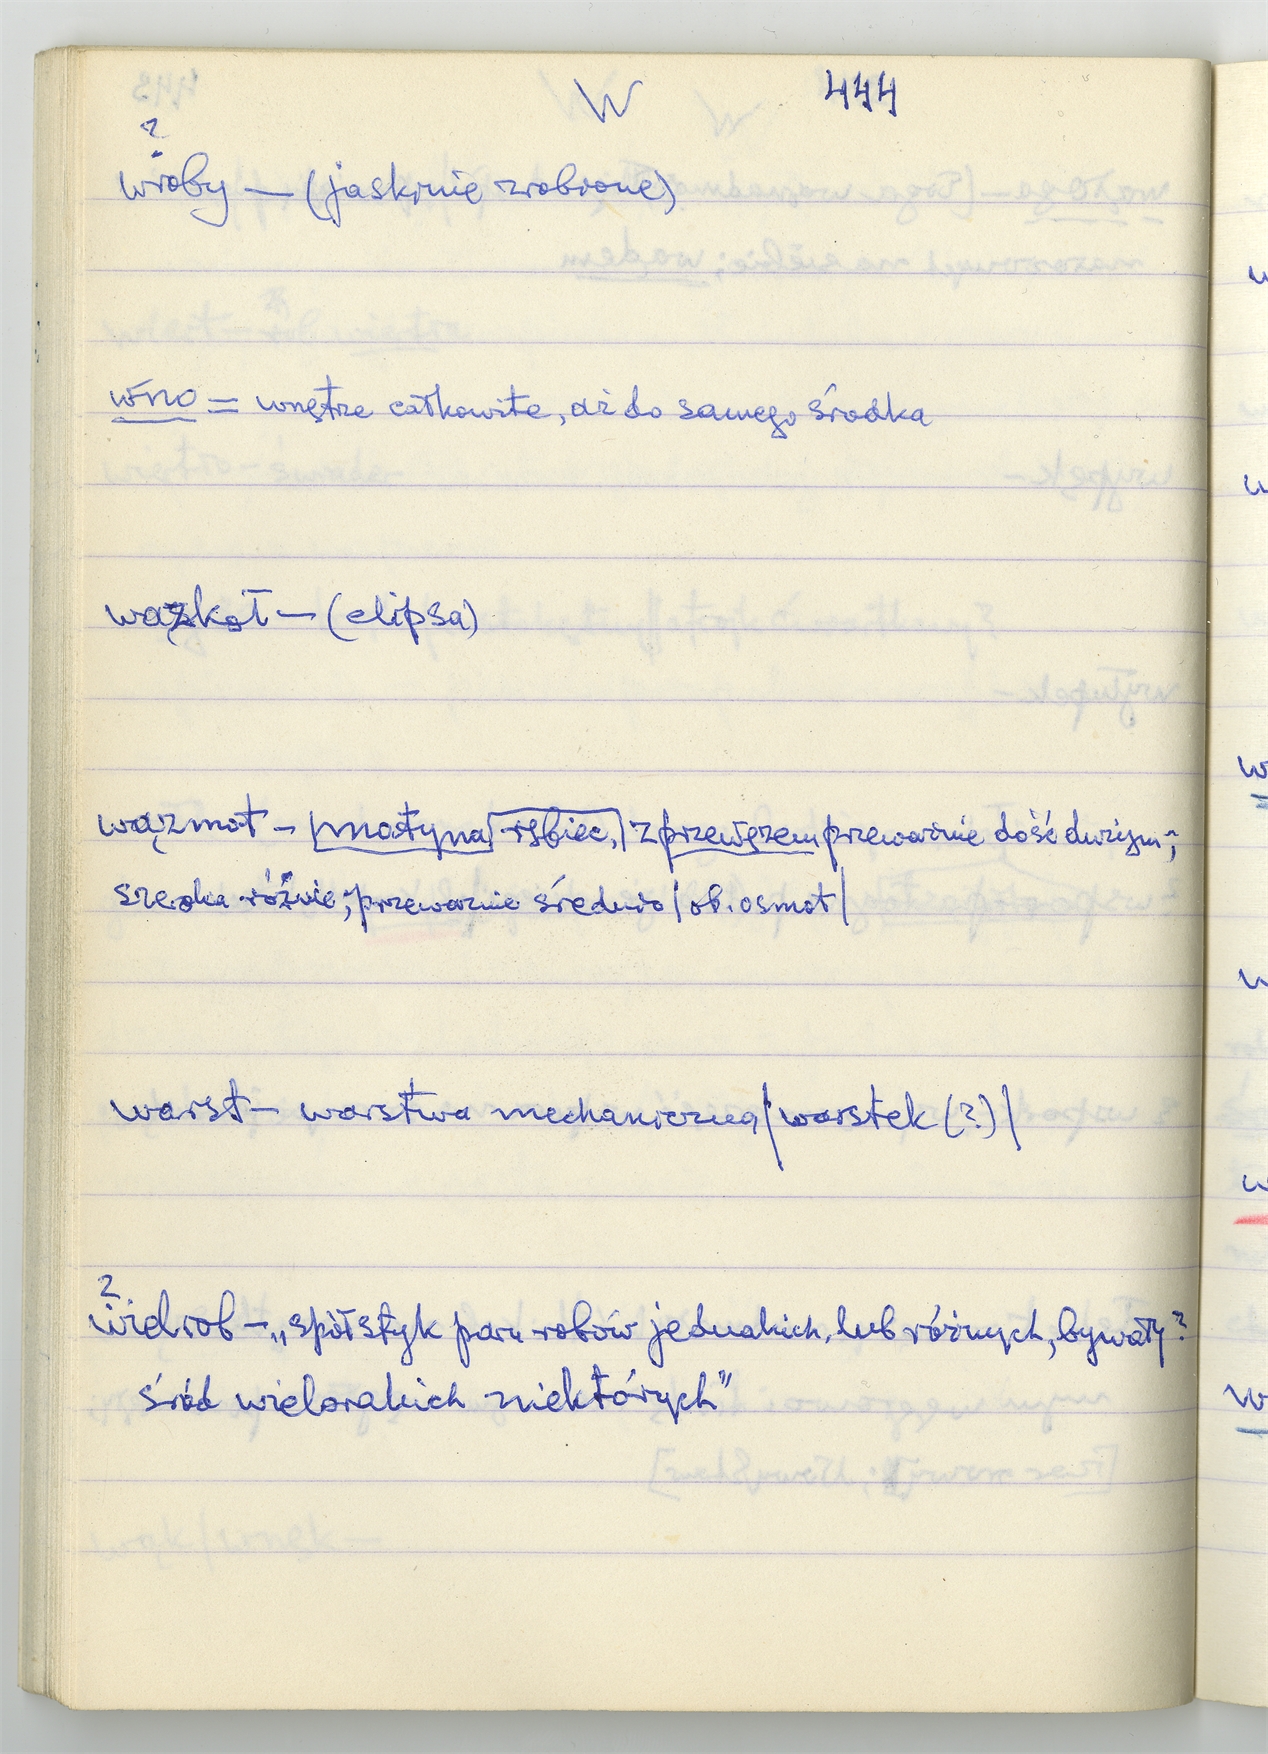 W 444
?
wroby — (jaskinie zrobione)
wno = wnętrze całkowite, aż do samego środka
wązkął — (elipsa)
wązmot — |motyna| rębiec,| z przewęzem przeważnie dość dużym;
szeroka różnie; przeważnie średnio |ob. osmot|
warst — warstwa mechaniczna |warstek (?)|
?
wielrob — „spółstyk paru robów jednakich, lub różnych, bywały?
śród wielorakich niektórych"